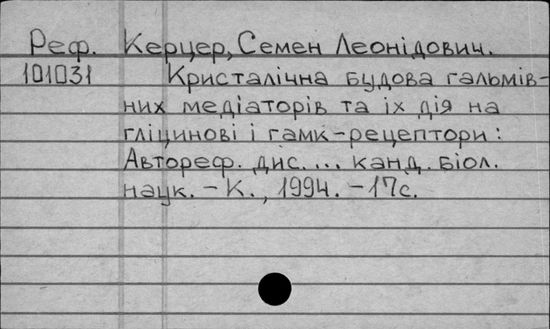 Реф. Керцер, Семен Леонідович.
101031 Кристалічна будова гальмів-
них медіаторів та їх дія на
гліцинові і гамк-рецептори:
Автореф. дис. ... канд. біол.
наук. - К., 1994. - 17с.